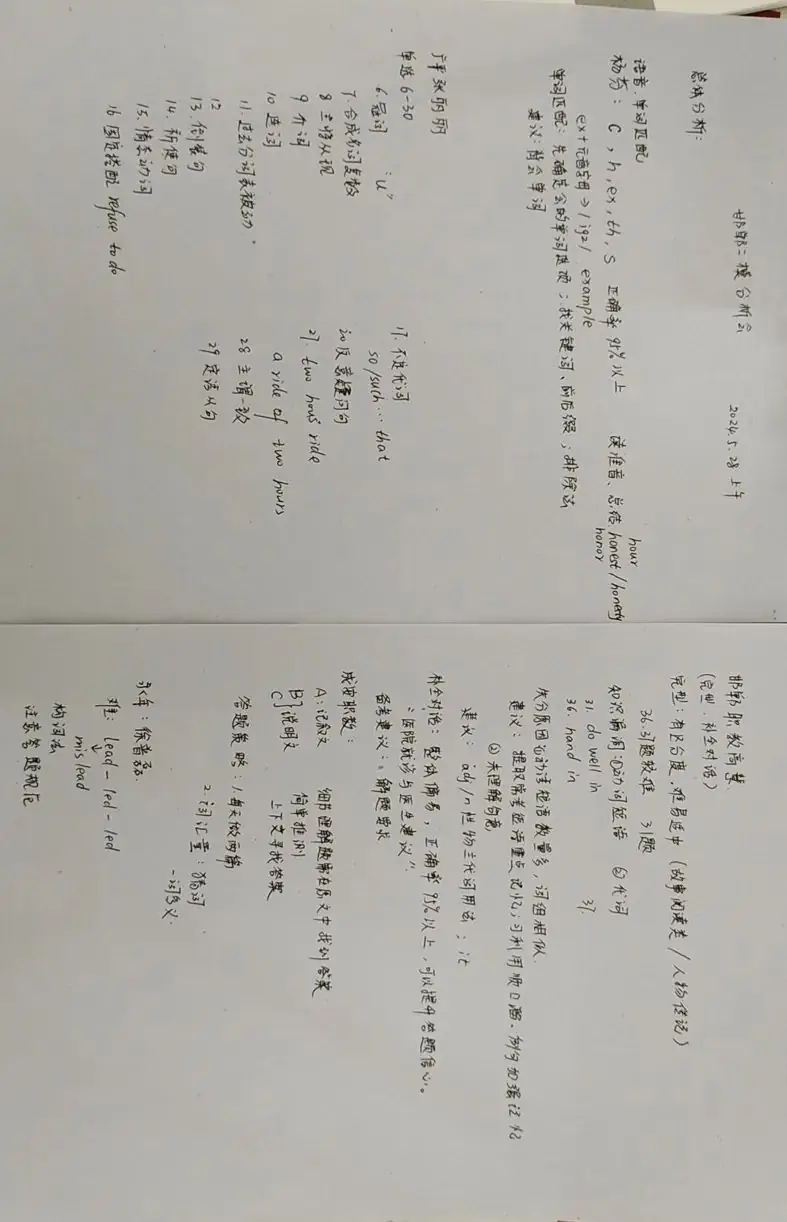 邯郸二模分析会
2024.5.28 上午
总体分析：
语音、单词匹配
杨芳： c, h, ex, th, s 正确率 95% 以上 读准音、总结 hour honest/honesty honor
ex+元音字母 → /igz/ example
单词匹配：先确定会的单词选项；找关键词、前后缀；排除法
建议：背会单词
张丽丽
单选 6-30
6 冠词 "u"
7. 合成名词复数
8 主将从现
9 介词
10 连词
11. 过去分词表被动
12
13. 倒装句
14. 祈使句
15. 情态动词
16 固定搭配 refuse to do
17. 不定代词
so/such … that
20 反意疑问句
27 two hours' ride
a ride of two hours
28 主谓一致
29 定语从句
邯郸职教高慧
(完型、补全对话)
完型：有区分度、难易适中 (故事阅读类/人物传记)
36.37题较难 31题
知识漏洞：①动词短语 ②代词
31. do well in 37.
36. hand in
失分原因：①动词短语数量多，词组相似
②未理解句意
建议：提取常考短语重点记忆；利用顺口溜、例句加强记忆
建议：adj/n性物主代词用法；it
补全对话：整体偏易，正确率95%以上，可以提升答题信心。
"医院就诊与医生建议"
备考建议：解题要求
成安职教：
A：记叙文 细节理解题需在原文中找到答案
B}说明文 简单推测
C 上下文寻找答案
答题策略：1.每天做两篇
2. 词汇量：猜词
-词多义.
永年：徐音磊
难： lead - led - led
mislead
构词法
注意答题规范